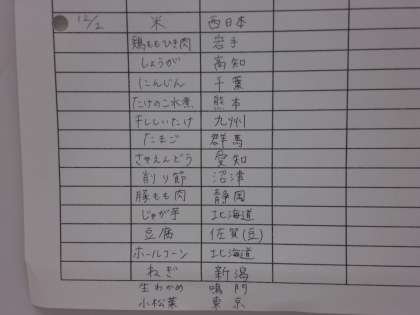 12/2 米 西日本
鶏ももひき肉 岩手
しょうが 高知
にんじん 千葉
たけのこ水煮 熊本
干ししいたけ 九州
たまご 群馬
さやえんどう 愛知
削り節 沼津
豚もも肉 静岡
じゃが芋 北海道
豆腐 佐賀(豆)
ホールコーン 北海道
ねぎ 新潟
生わかめ 鳴門
小松菜 東京